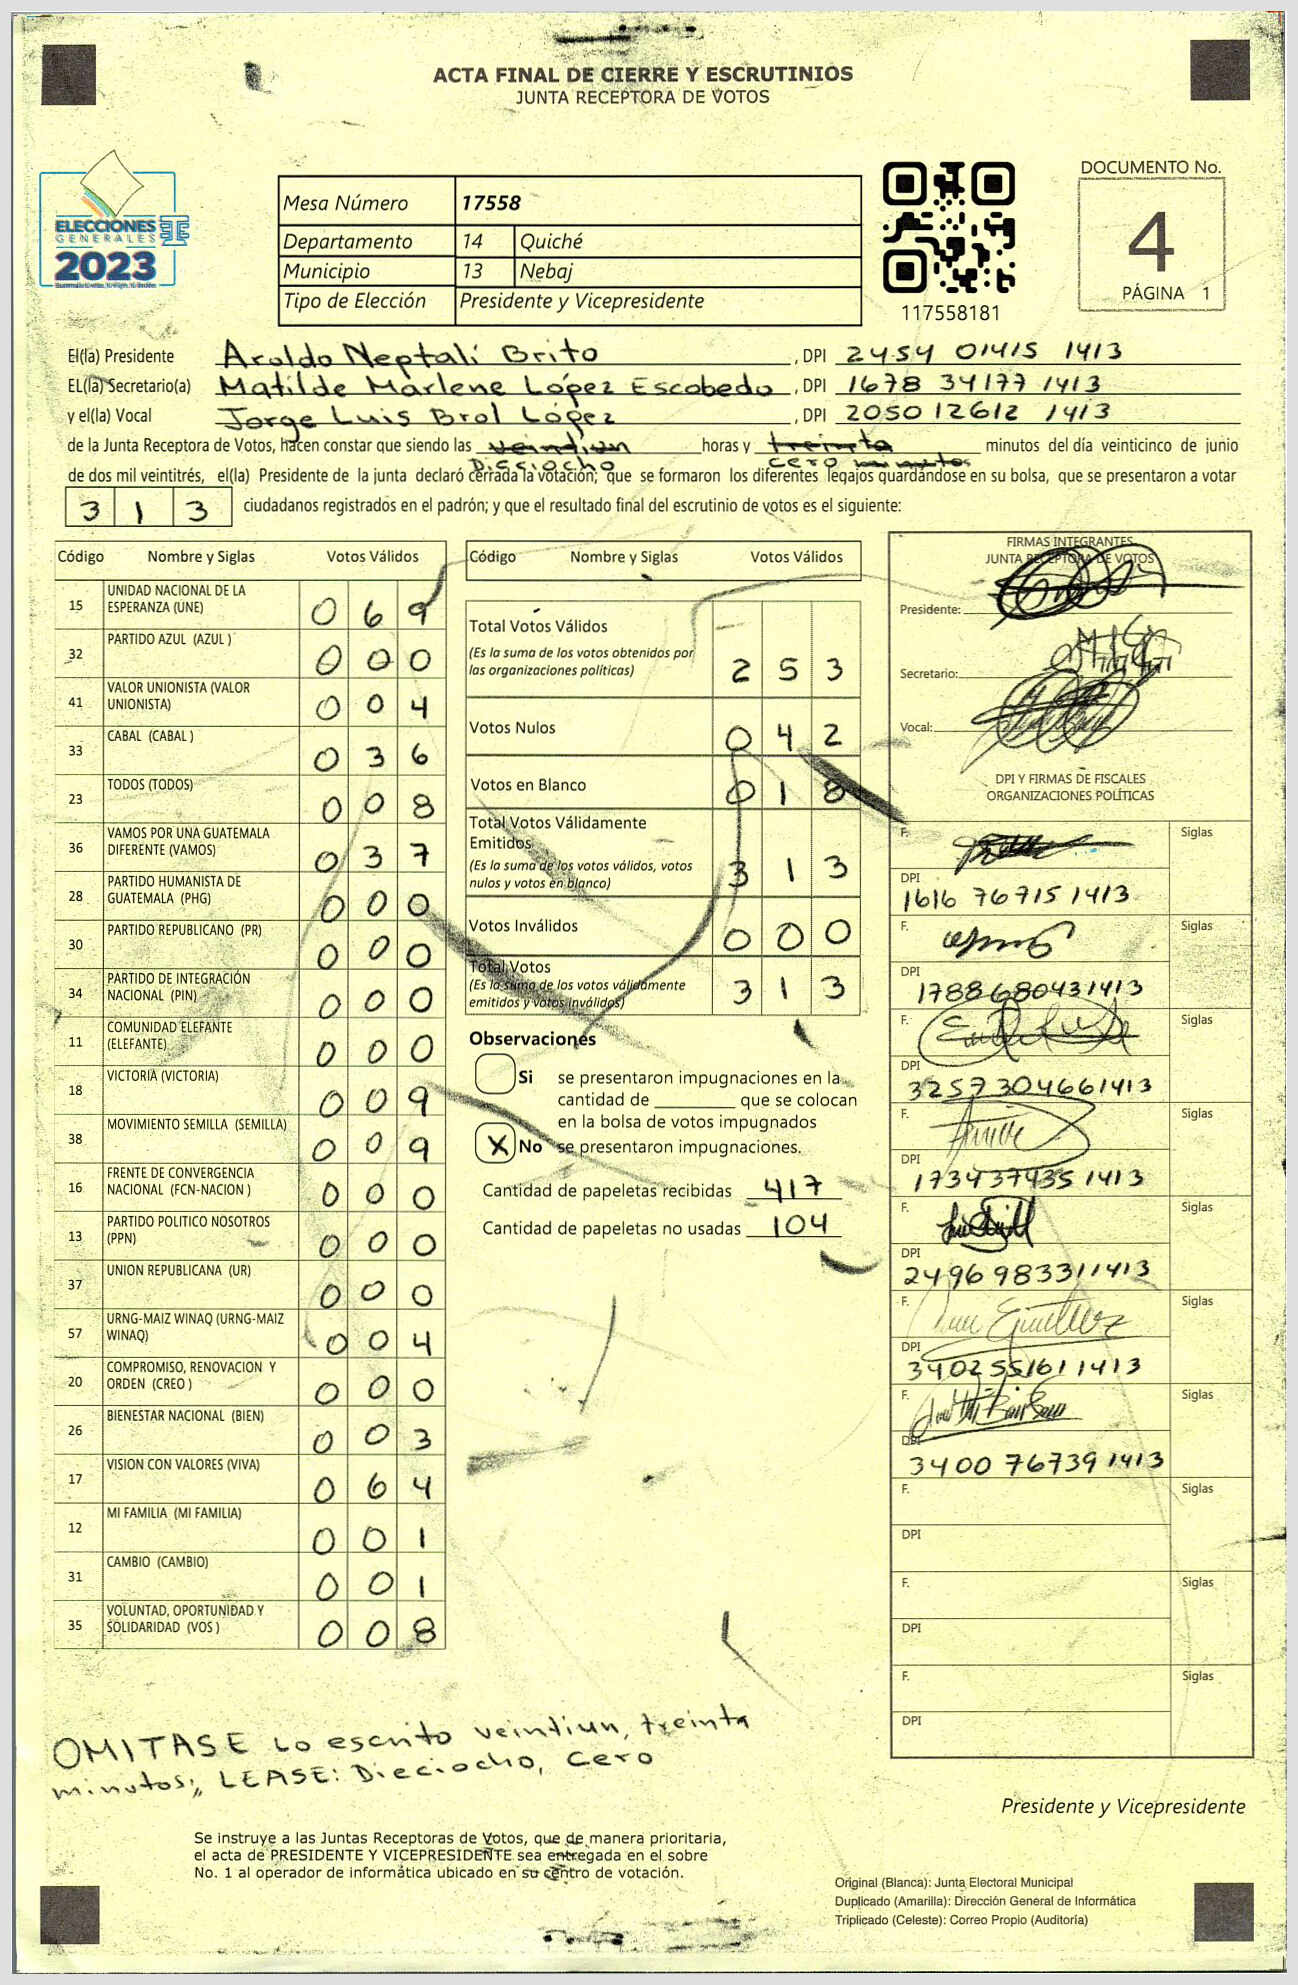 ACTA FINAL DE CIERRE Y ESCRUTINIOS
JUNTA RECEPTORA DE VOTOS
ELECCIONES
GENERALES
2023
Mesa Número 17558
Departamento 14 Quiché
Municipio 13 Nebaj
Tipo de Elección Presidente y Vicepresidente
117558181
DOCUMENTO No.
4
PÁGINA 1
El(la) Presidente Aroldo Neptalí Brito , DPI 2454 01415 1413
EL(la) Secretario(a) Matilde Marlene López Escobedo , DPI 1678 34177 1413
y el(la) Vocal Jorge Luis Brol López , DPI 2050 12612 1413
de la Junta Receptora de Votos, hacen constar que siendo las veintiun horas y treinta minutos del día veinticinco de junio
Dieciocho cero minutos
de dos mil veintitrés, el(la) Presidente de la junta declaró cerrada la votación; que se formaron los diferentes legajos guardándose en su bolsa, que se presentaron a votar
313 ciudadanos registrados en el padrón; y que el resultado final del escrutinio de votos es el siguiente:
Código Nombre y Siglas Votos Válidos
15 UNIDAD NACIONAL DE LA ESPERANZA (UNE) 069
32 PARTIDO AZUL (AZUL ) 000
41 VALOR UNIONISTA (VALOR UNIONISTA) 004
33 CABAL (CABAL ) 036
23 TODOS (TODOS) 008
36 VAMOS POR UNA GUATEMALA DIFERENTE (VAMOS) 037
28 PARTIDO HUMANISTA DE GUATEMALA (PHG) 000
30 PARTIDO REPUBLICANO (PR) 000
34 PARTIDO DE INTEGRACIÓN NACIONAL (PIN) 000
11 COMUNIDAD ELEFANTE (ELEFANTE) 000
18 VICTORIA (VICTORIA) 009
38 MOVIMIENTO SEMILLA (SEMILLA) 009
16 FRENTE DE CONVERGENCIA NACIONAL (FCN-NACION ) 000
13 PARTIDO POLITICO NOSOTROS (PPN) 000
37 UNION REPUBLICANA (UR) 000
57 URNG-MAIZ WINAQ (URNG-MAIZ WINAQ) 004
20 COMPROMISO, RENOVACION Y ORDEN (CREO ) 000
26 BIENESTAR NACIONAL (BIEN) 003
17 VISION CON VALORES (VIVA) 064
12 MI FAMILIA (MI FAMILIA) 001
31 CAMBIO (CAMBIO) 001
35 VOLUNTAD, OPORTUNIDAD Y SOLIDARIDAD (VOS ) 008
Código Nombre y Siglas Votos Válidos
Total Votos Válidos
(Es la suma de los votos obtenidos por
las organizaciones políticas) 253
Votos Nulos 042
Votos en Blanco 018
Total Votos Válidamente
Emitidos
(Es la suma de los votos válidos, votos
nulos y votos en blanco) 313
Votos Inválidos 000
Total Votos
(Es la suma de los votos válidamente
emitidos y votos inválidos) 313
Observaciones
Si se presentaron impugnaciones en la
cantidad de ________ que se colocan
en la bolsa de votos impugnados
X No se presentaron impugnaciones.
Cantidad de papeletas recibidas 417
Cantidad de papeletas no usadas 104
FIRMAS INTEGRANTES
JUNTA RECEPTORA DE VOTOS
Presidente:
Secretario:
Vocal:
DPI Y FIRMAS DE FISCALES
ORGANIZACIONES POLÍTICAS
F. Siglas
DPI
1616 76715 1413
F. Siglas
DPI
1788680431413
F. Siglas
DPI
3257304661413
F. Siglas
DPI
1734374351413
F. Siglas
DPI
2496983311413
F. Siglas
DPI
3402551611413
F. Siglas
DPI
3400 76739 1413
F. Siglas
DPI
F. Siglas
DPI
F. Siglas
DPI
OMITASE Lo escrito veintiun, treinta
minutos;, LEASE: Dieciocho, Cero
Presidente y Vicepresidente
Se instruye a las Juntas Receptoras de Votos, que de manera prioritaria,
el acta de PRESIDENTE Y VICEPRESIDENTE sea entregada en el sobre
No. 1 al operador de informática ubicado en su centro de votación.
Original (Blanca): Junta Electoral Municipal
Duplicado (Amarilla): Dirección General de Informática
Triplicado (Celeste): Correo Propio (Auditoría)